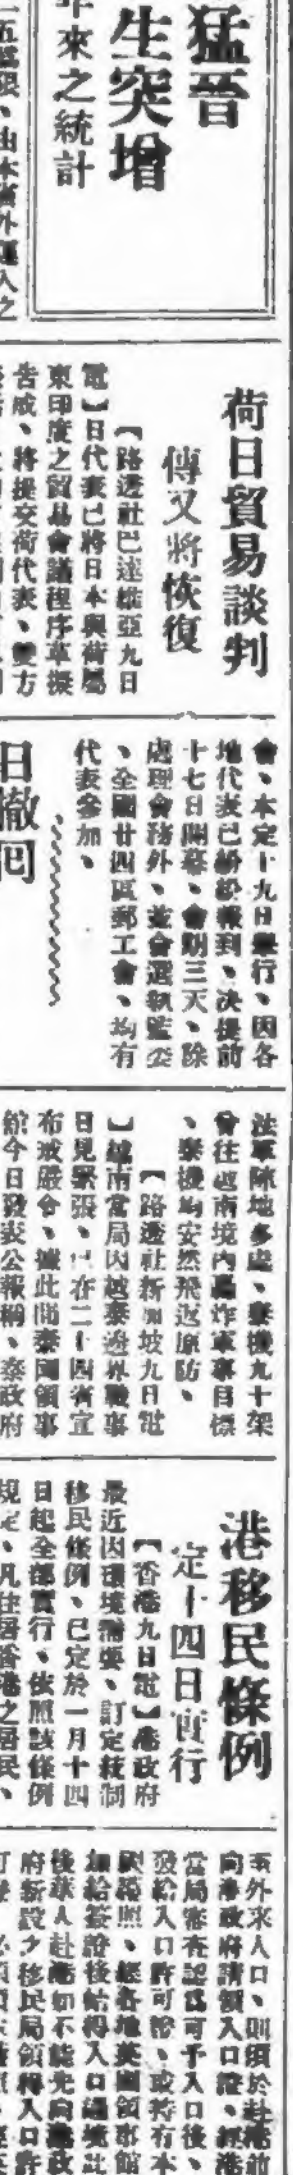 猛晉
生突增
年來之統計
五號限、由本省外運入之
荷日貿易談判
傳又將恢復
【路透社巴達維亞九日
電】日代表已將日本與荷屬
東印度之貿易會議程序草擬
告成、將提交荷代表、雙方
會、本定十九日舉行、因各
地代表已紛紛報到、決提前
十七日開幕、會期三天、除
處理會務外、並會選執監委
、全國廿四區郵工會、均有
代表參加、
日撤回
法軍陣地多處、泰機九十架
曾往越南境內轟炸軍事目標
、泰機均安然飛返原防、
【路透社新加坡九日電
】越南當局因越泰邊界戰事
日見緊張、已在二十四省宣
布戒嚴令、據此間泰國領事
館今日發表公報稱、泰政府
港移民條例
定十四日實行
【香港九日電】港政府
最近因環境需要、訂定統制
移民條例、已定於一月十四
日起全部實行、依照該條例
規定、凡住居香港之居民、
外來人口、則須於赴港前
向港政府請領入口證、經港
當局審查認為可予入口後、
發給入口許可證、或持有本
國護照、經各地英國領事館
加給簽證後始得入口
後華人赴港如不能先向港政
府新設之移民局領得入口許